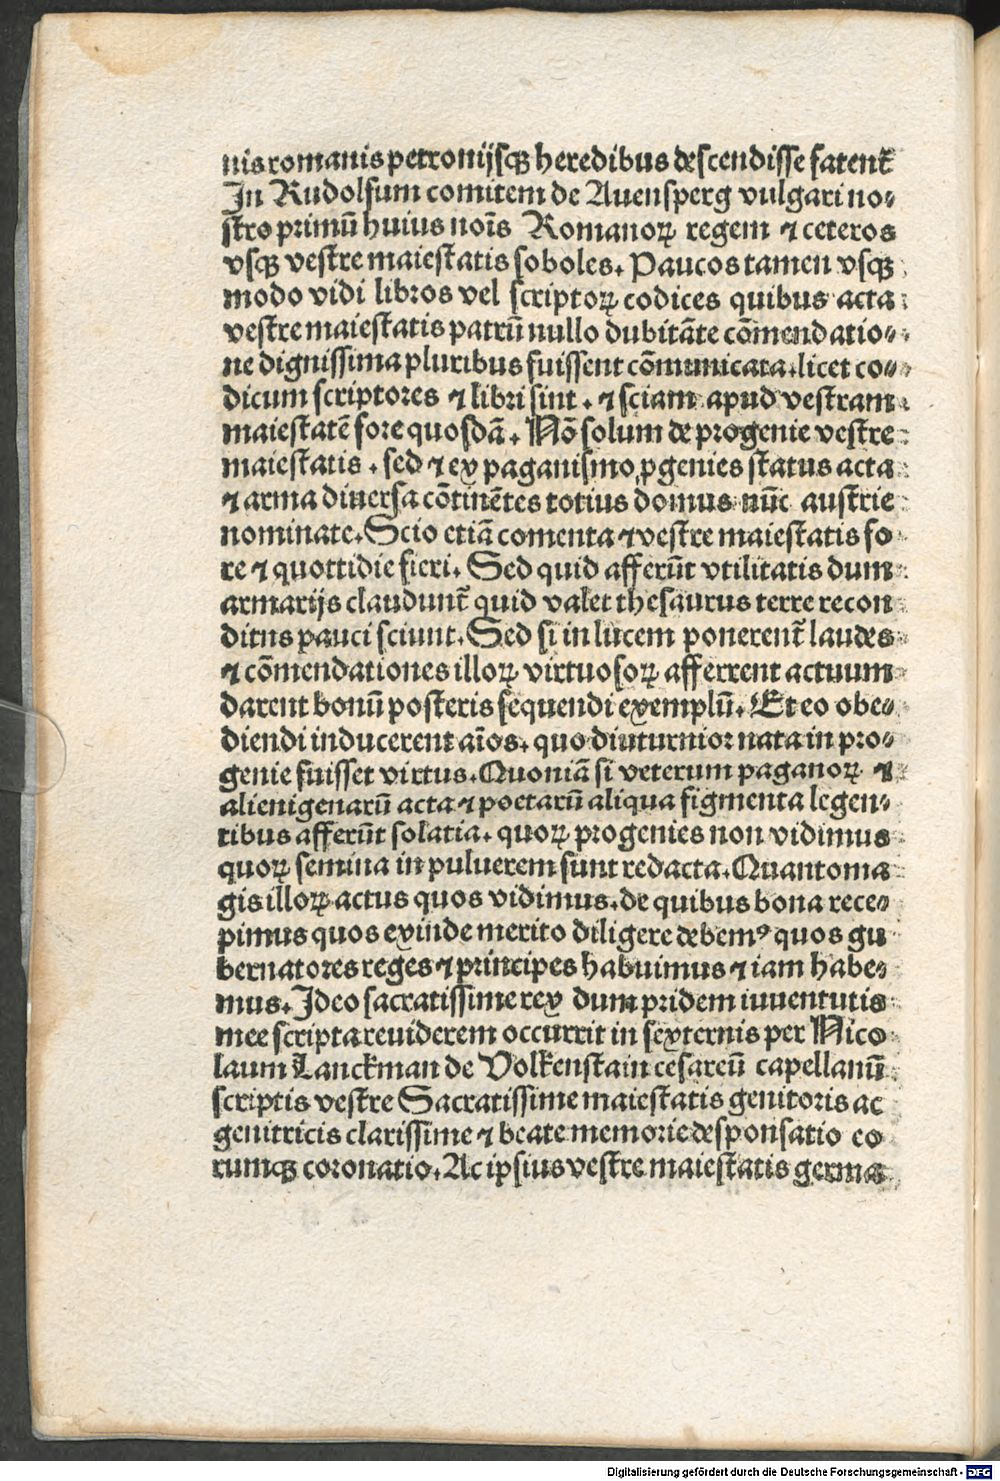 nis romanis petronijsqꝫ heredibus descendisse fatent᷑
In Rudolfum comitem de Auensperg vulgari no-
stro primū huius noīs Romanoꝝ regem ⁊ ceteros
vsqꝫ vestre maiestatis soboles. Paucos tamen vsqꝫ
modo vidi libros vel scriptoꝝ codices quibus acta
vestre maiestatis patrū nullo dubitāte cōmendatio-
ne dignissima pluribus fuissent cōmunicata. licet co-
dicum scriptores ⁊ libri sint. ⁊ sciam apud vestram
maiestatē fore quosdā. Nō solum de progenie vestre
maiestatis. sed ⁊ ex paganismo ꝓgenies status acta
⁊ arma diuersa cōtinētes totius domus nūc austrie
nominate. Scio etiā comenta ⁊ vestre maiestatis fo
re ⁊ quottidie fieri. Sed quid afferūt vtilitatis dum
armarijs claudunt᷑ quid valet thesaurus terre recon
ditus pauci sciunt. Sed si in lucem ponerent᷑ laudes
⁊ cōmendationes illoꝝ virtuosoꝝ afferrent actuum
darent bonū posteris sequendi exemplū. Et eo obe-
diendi inducerent aīos. quo diuturnior nata in pro-
genie fuisset virtus. Quoniā si veterum paganoꝝ ⁊
alienigenarū acta ⁊ poetarū aliqua figmenta legen-
tibus afferūt solatia. quoꝝ progenies non vidimus
quoꝝ semina in puluerem sunt redacta. Quantoma
gis illoꝝ actus quos vidimus. de quibus bona rece-
pimus quos exinde merito diligere debemꝰ quos gu
bernatores reges ⁊ principes habuimus ⁊ iam habe-
mus. Ideo sacratissime rex dum pridem iuuentutis
mee scripta reuiderem occurrit in sexternis per Nico
laum Lanckman de Volkenstain cesareū capellanū
scriptis vestre Sacratissime maiestatis genitoris ac
genitricis clarissime ⁊ beate memorie desponsatio eo
rumqꝫ coronatio. Ac ipsius vestre maiestatis germa
Digitalisierung gefördert durch die Deutsche Forschungsgemeinschaft - DFG